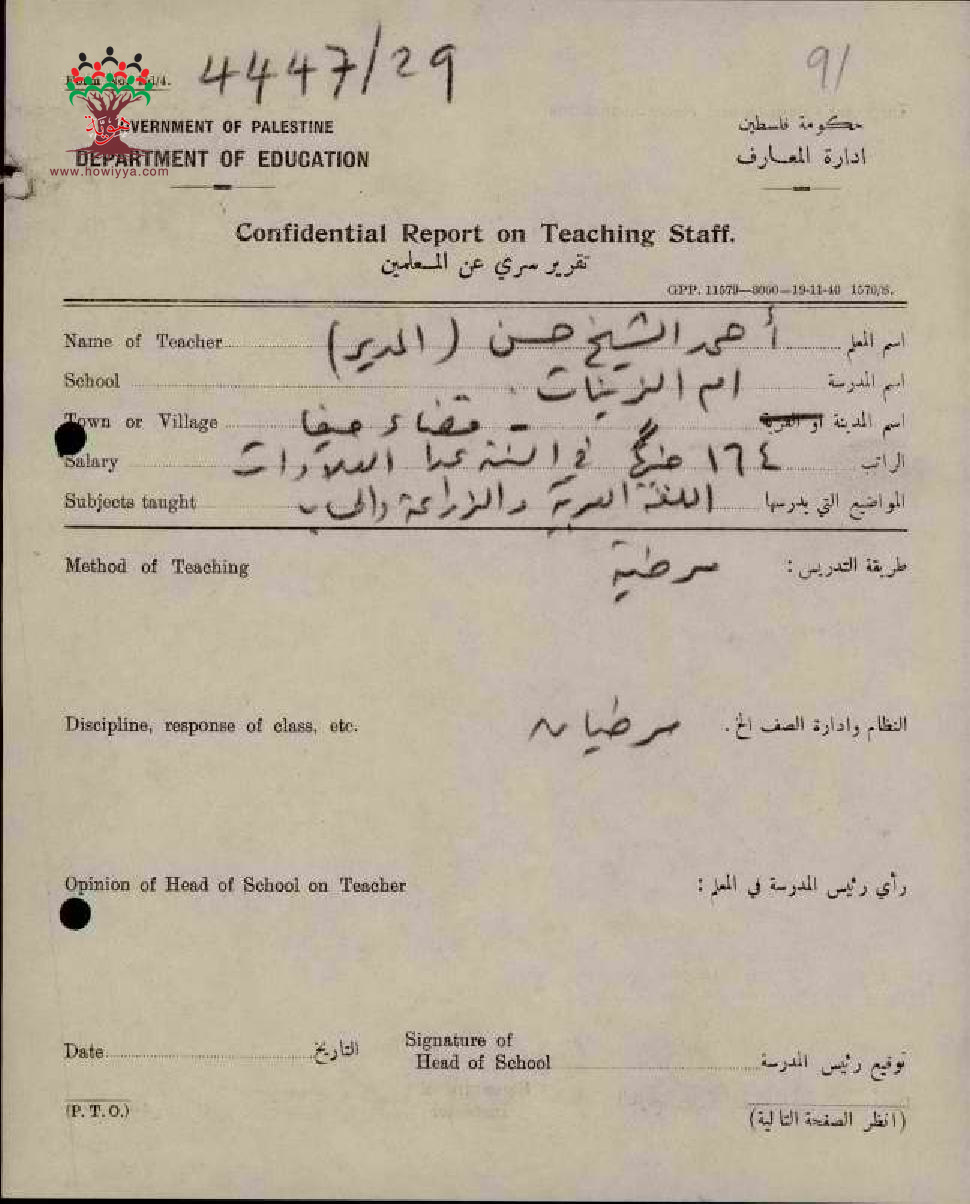 Form No. Ed/4. 4447/29 91
هوية
www.howiyya.com
GOVERNMENT OF PALESTINE حكومة فلسطين
DEPARTMENT OF EDUCATION ادارة المعارف
Confidential Report on Teaching Staff.
تقرير سري عن المعلمين
GPP. 11579—8000—19-11-40 1570/S.
Name of Teacher أحمد الشيخ حسن (المدير) اسم المعلم
School ام الزينات. اسم المدرسة
Town or Village قضاء حيفا اسم المدينة او القرية
Salary ١٦٤ جنيها في السنة عدا العلاوات الراتب
Subjects taught اللغة العربية والزراعة والحساب المواضيع التي يدرسها
Method of Teaching مرضية طريقة التدريس:
Discipline, response of class, etc. مرضيان النظام وادارة الصف الخ.
Opinion of Head of School on Teacher رأي رئيس المدرسة في المعلم:
Date التاريخ Signature of
Head of School توقيع رئيس المدرسة
(P. T. O.) (انظر الصفحة التالية)